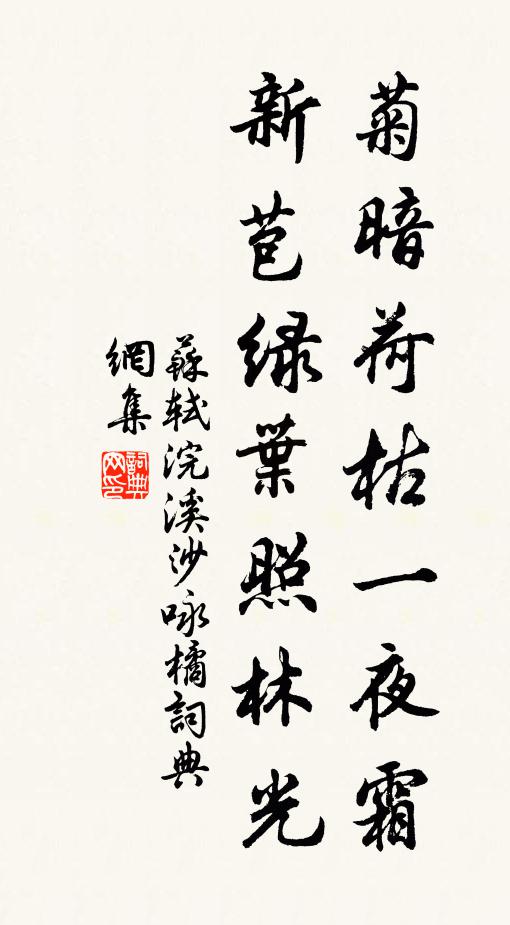 菊暗荷枯一夜霜
新苞綠葉照林光
蘇軾浣溪沙咏橘詞典
網集
詞典網印